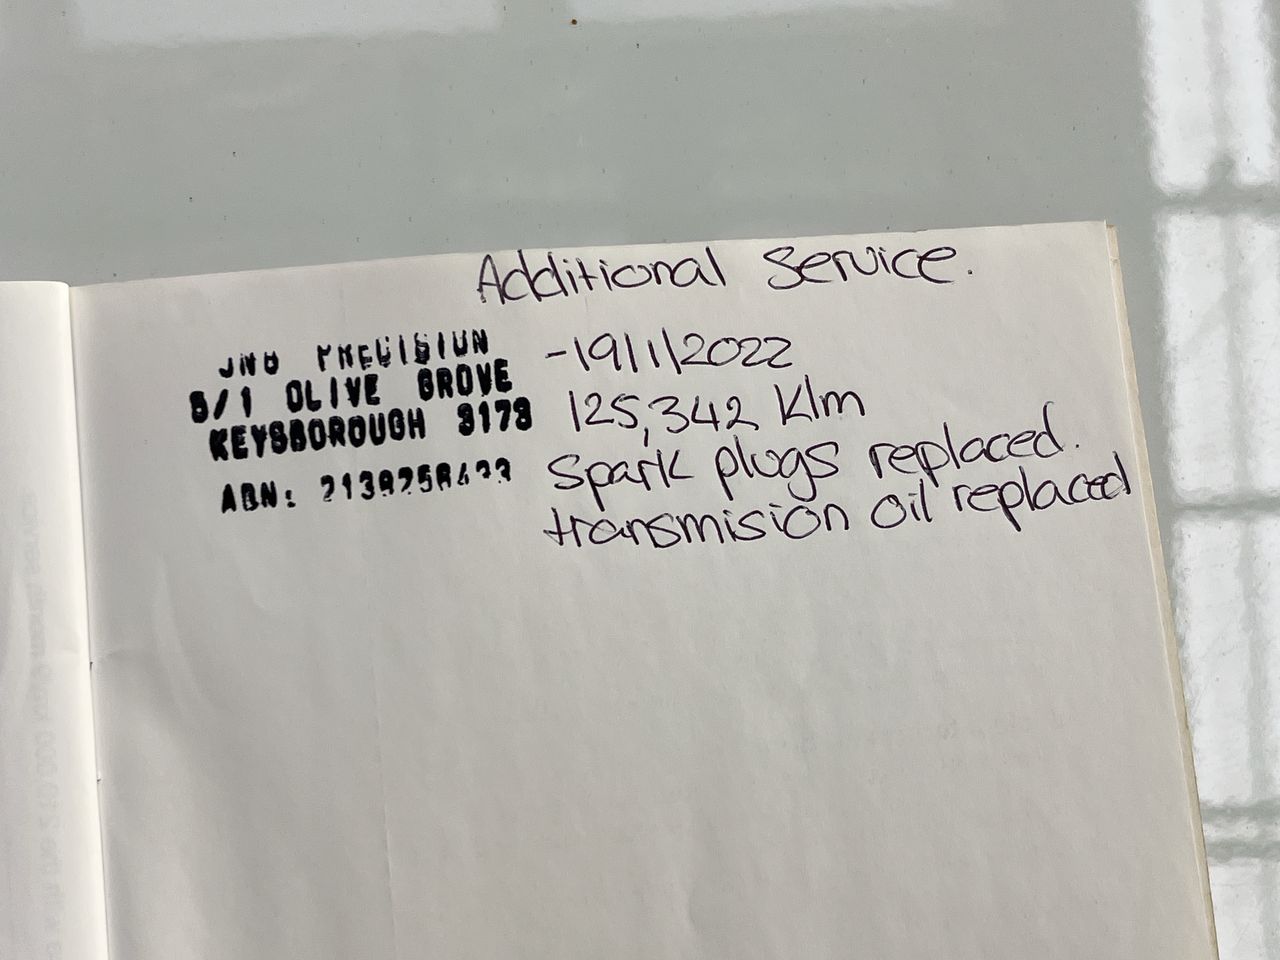 Additional Service.
PRECISION
OLIVE GROVE
KEYSBOROUGH 3173
ABN:
-19/1/2022
125,342 Klm
Spark plugs replaced.
transmision oil replaced